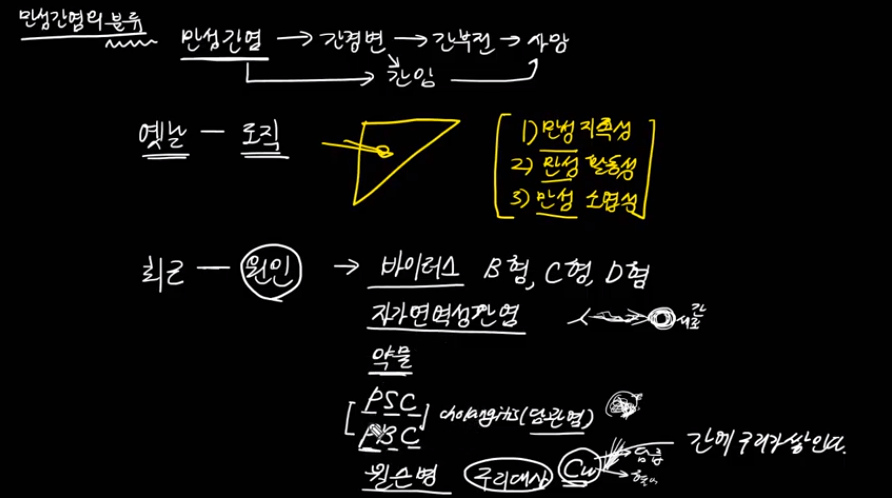 만성간염의 분류
만성간염 → 간경변 → 간부전 → 사망
간암
옛날 — 조직
1) 만성 지속성
2) 만성 활동성
3) 만성 소엽성
최근 — 원인 → 바이러스 B형, C형, D형
자가면역성간염
간
세포
약물
[PSC] cholangitis (담관염)
PBC
윌슨병 구리대사 Cu 담즙
간에 구리가 쌓인다.